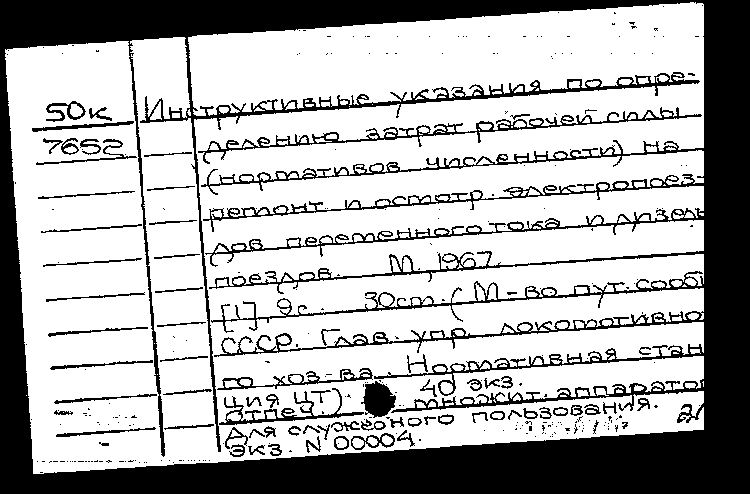 50к Инструктивные указания по опре-
7652 делению затрат рабочей силы
(нормативов численности) на
ремонт и осмотр электропоез-
дов переменного тока и дизель
поездов. М., 1967.
[1], 9с. 30cm. (М-во пут. сооб
СССР. Глав. упр. локомотивно
го хоз-ва. Нормативная стан
ция ЦТ). 40 экз.
отпеч. множит. аппаратом
Для служебного пользования.
Экз. N 00004.